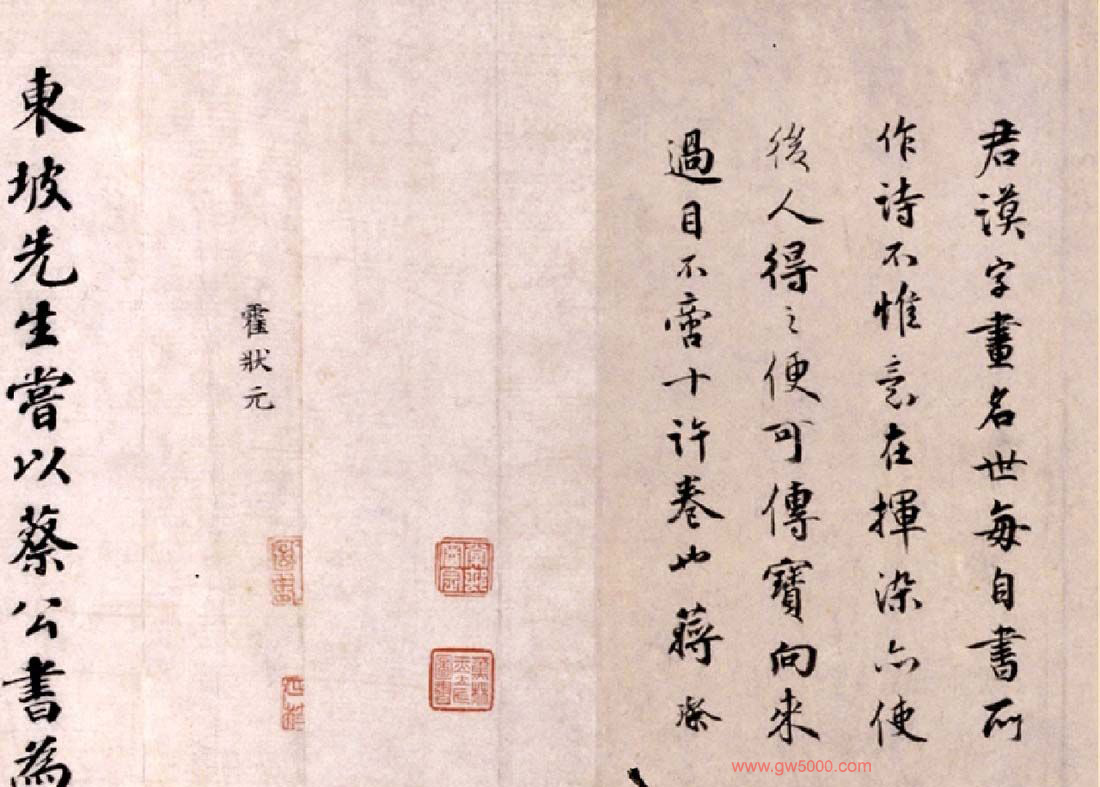 君謨字畫名世每自書所
作詩不惟意在揮染亦使
後人得之便可傳寶向來
過目不啻十許卷也蔣璨
霍狀元
東坡先生嘗以蔡公書為
www.gw5000.com